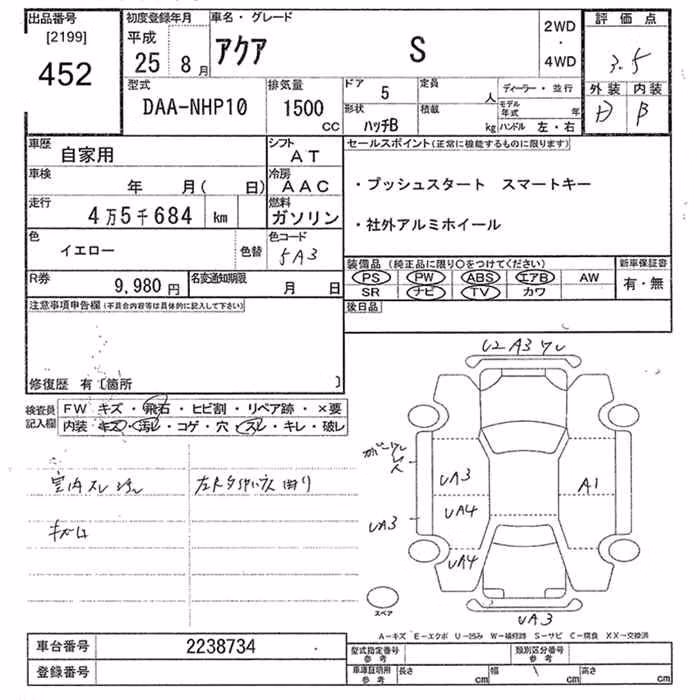 出品番号
[2199]
452
初度登録年月
平成
25 8月
車名・グレード
アクア S
2WD
・
4WD
評価点
3.5
外装 内装
B
型式
DAA-NHP10
排気量
1500
CC
ドア 5
形状
ハッチB
定員
人
積載
kg
ディーラー・並行
モデル年式 年
ハンドル 左・右
車歴
自家用
シフト
AT
車検
年 月( 日)
冷房
AAC
走行
4万5千684 km
燃料
ガソリン
色
イエロー
色替
色コード
5A3
R券
9,980円
名変通知期限
月 日
セールスポイント(正常に機能するものに限ります)
・プッシュスタート スマートキー
・社外アルミホイール
装備品(純正品に限り○をつけてください)
PS PW ABS エアB AW
SR ナビ TV カワ
新車保証書
有・無
後日品
注意事項申告欄(不具合内容等は具体的に記入して下さい)
修復歴 有〔箇所 〕
検査員
記入欄
FW キズ・飛石・ヒビ割・リペア跡・×要
内装 キズ・汚レ・コゲ・穴・スレ・キレ・破レ
U2 A3 ワレ
UA3
UA4
A1
UA3
UA4
UA3
スペア
A-キズ E-エクボ U-凹み W-補修跡 S-サビ C-腐食 XX-交換済
車台番号
2238734
登録番号
型式指定番号
参考
類別区分番号
参考
車庫証明用
参考
長さ cm 幅 cm 高さ cm